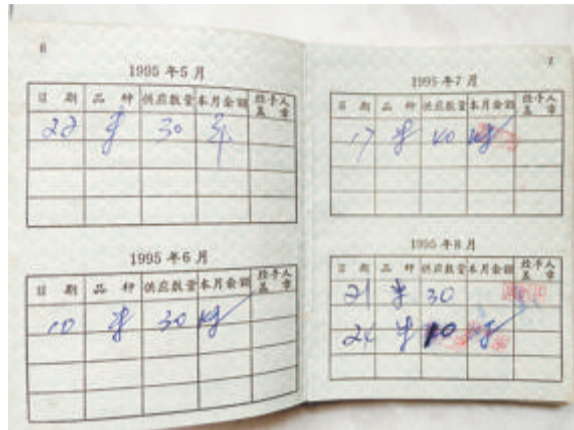 6
1995 年 5 月
日 期 品 种 供应数量 本月余额 经手人盖章
22 米 30 斤
1995 年 6 月
日 期 品 种 供应数量 本月余额 经手人盖章
10 米 30 kg
7
1995 年 7 月
日 期 品 种 供应数量 本月余额 经手人盖章
17 米 40 kg
1995 年 8 月
日 期 品 种 供应数量 本月余额 经手人盖章
21 米 30
24 米 10 kg